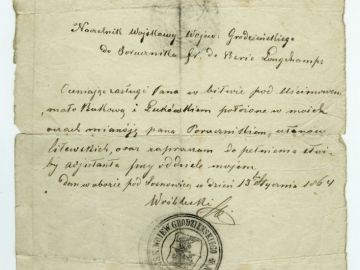 Naczelnik Wojskowy Wojew: Grodzieńskiego
do Porucznika de Berie Longchamps
Oceniając zasługi Pana w bitwie pod Uścimowem,
mało Bukową i Łukówkiem położone w moich
oczach mianuję pana Porucznikiem, ułanow
litewskich, oraz zapraszam do pełnienia służ-
by adjutanta przy oddziele mojem.
Dan w obozie pod Sosnowicą w dzień 13 Stycznia 1864
Wróblewski
WOJEW GRODZIEŃSKIEGO